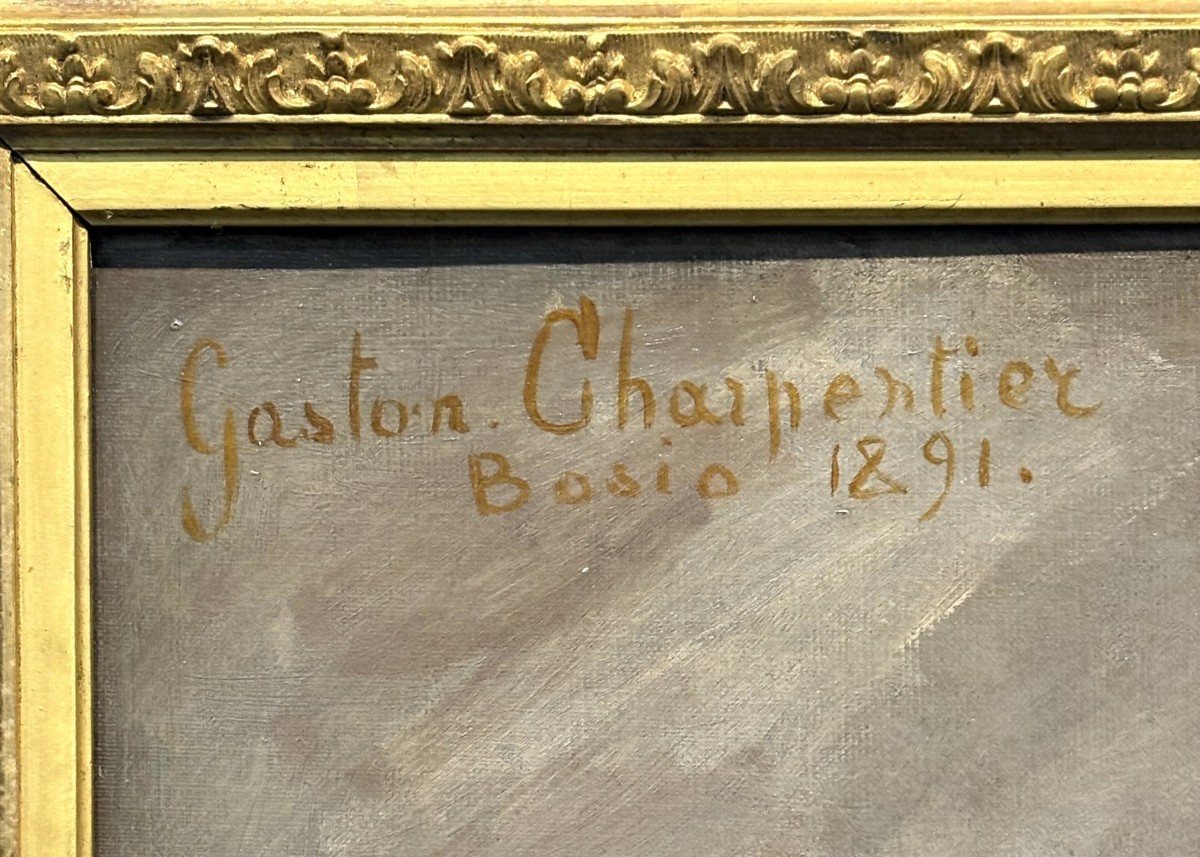 Gaston. Charpentier
Bosio 1891.